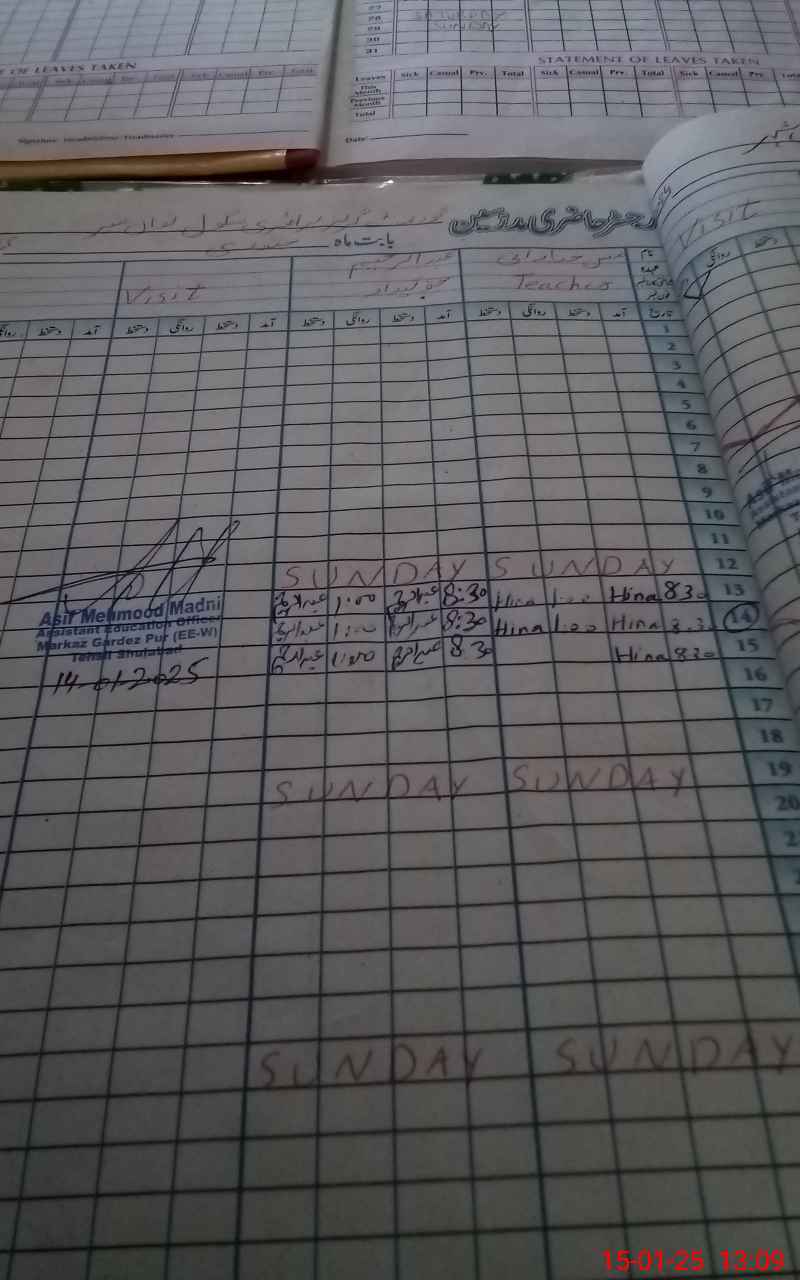 27
28 SATURDAY
29 SUNDAY
30
31
OF LEAVES TAKEN
STATEMENT OF LEAVES TAKEN
Sick Casual Prv. Total
Leaves Sick Casual Prv. Total Sick Casual Prv. Total Sick Casual Prv.
This Month
Previous Month
Total
Signature Headmistress/Headmaster
Date:
رجسٹر حاضری مدرسین
بابت ماہ جنوری
Visit
نام
عہدہ
عبدالرحیم
Teacher
چوکیدار
Visit
تاریخ آمد دستخط روانگی دستخط آمد دستخط روانگی دستخط آمد دستخط روانگی دستخط آمد دستخط
1
2
3
4
5
6
7
8
9
10
11
12 SUNDAY SUNDAY
13 830 Hina 1:00 Hina 8:30 عبدالرحیم 1:00 عبدالرحیم
14 8.30 Hina 1:00 Hina 8:30 عبدالرحیم 1:00 عبدالرحیم
15 830 Hina 8 30 عبدالرحیم 1:00 عبدالرحیم
Asif Mehmood Madni
Assistant Education Officer
Markaz Gardez Pur (EE-W)
Tehsil Shujabad
14-01-2025
16
17
18
19 SUNDAY SUNDAY
20
SUNDAY SUNDAY
15-01-25 13:09